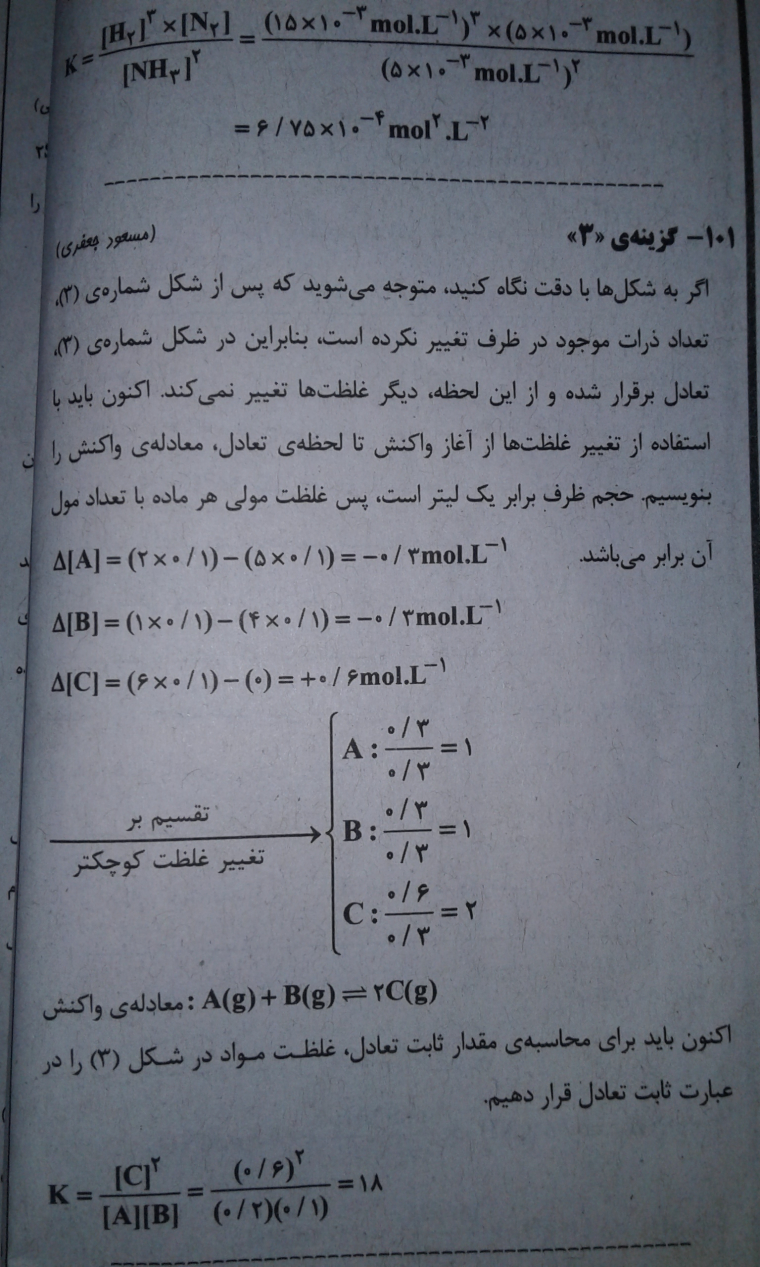 K = [H₂]^۳ × [N₂] / [NH₃]^۲ = (۱۵×۱۰^−۳ mol.L^−۱)^۳ × (۵×۱۰^−۳ mol.L^−۱) / (۵×۱۰^−۳ mol.L^−۱)^۲
= ۶/۷۵×۱۰^−۴ mol^۲.L^−۲
۱۰۱- گزینه‌ی «۳» (مسعود جعفری)
اگر به شکل‌ها با دقت نگاه کنید، متوجه می‌شوید که پس از شکل شماره‌ی (۳)،
تعداد ذرات موجود در ظرف تغییر نکرده است، بنابراین در شکل شماره‌ی (۳)،
تعادل برقرار شده و از این لحظه، دیگر غلظت‌ها تغییر نمی‌کند. اکنون باید با
استفاده از تغییر غلظت‌ها از آغاز واکنش تا لحظه‌ی تعادل، معادله‌ی واکنش را
بنویسیم. حجم ظرف برابر یک لیتر است، پس غلظت مولی هر ماده با تعداد مول
آن برابر می‌باشد. Δ[A] = (۲×۰/۱) − (۵×۰/۱) = −۰/۳ mol.L^−۱
Δ[B] = (۱×۰/۱) − (۴×۰/۱) = −۰/۳ mol.L^−۱
Δ[C] = (۶×۰/۱) − (۰) = +۰/۶ mol.L^−۱
تقسیم بر
تغییر غلظت کوچکتر
A : ۰/۳ / ۰/۳ = ۱
B : ۰/۳ / ۰/۳ = ۱
C : ۰/۶ / ۰/۳ = ۲
معادله‌ی واکنش : A(g) + B(g) ⇌ ۲C(g)
اکنون باید برای محاسبه‌ی مقدار ثابت تعادل، غلظت مواد در شکل (۳) را در
عبارت ثابت تعادل قرار دهیم.
K = [C]^۲ / [A][B] = (۰/۶)^۲ / (۰/۲)(۰/۱) = ۱۸